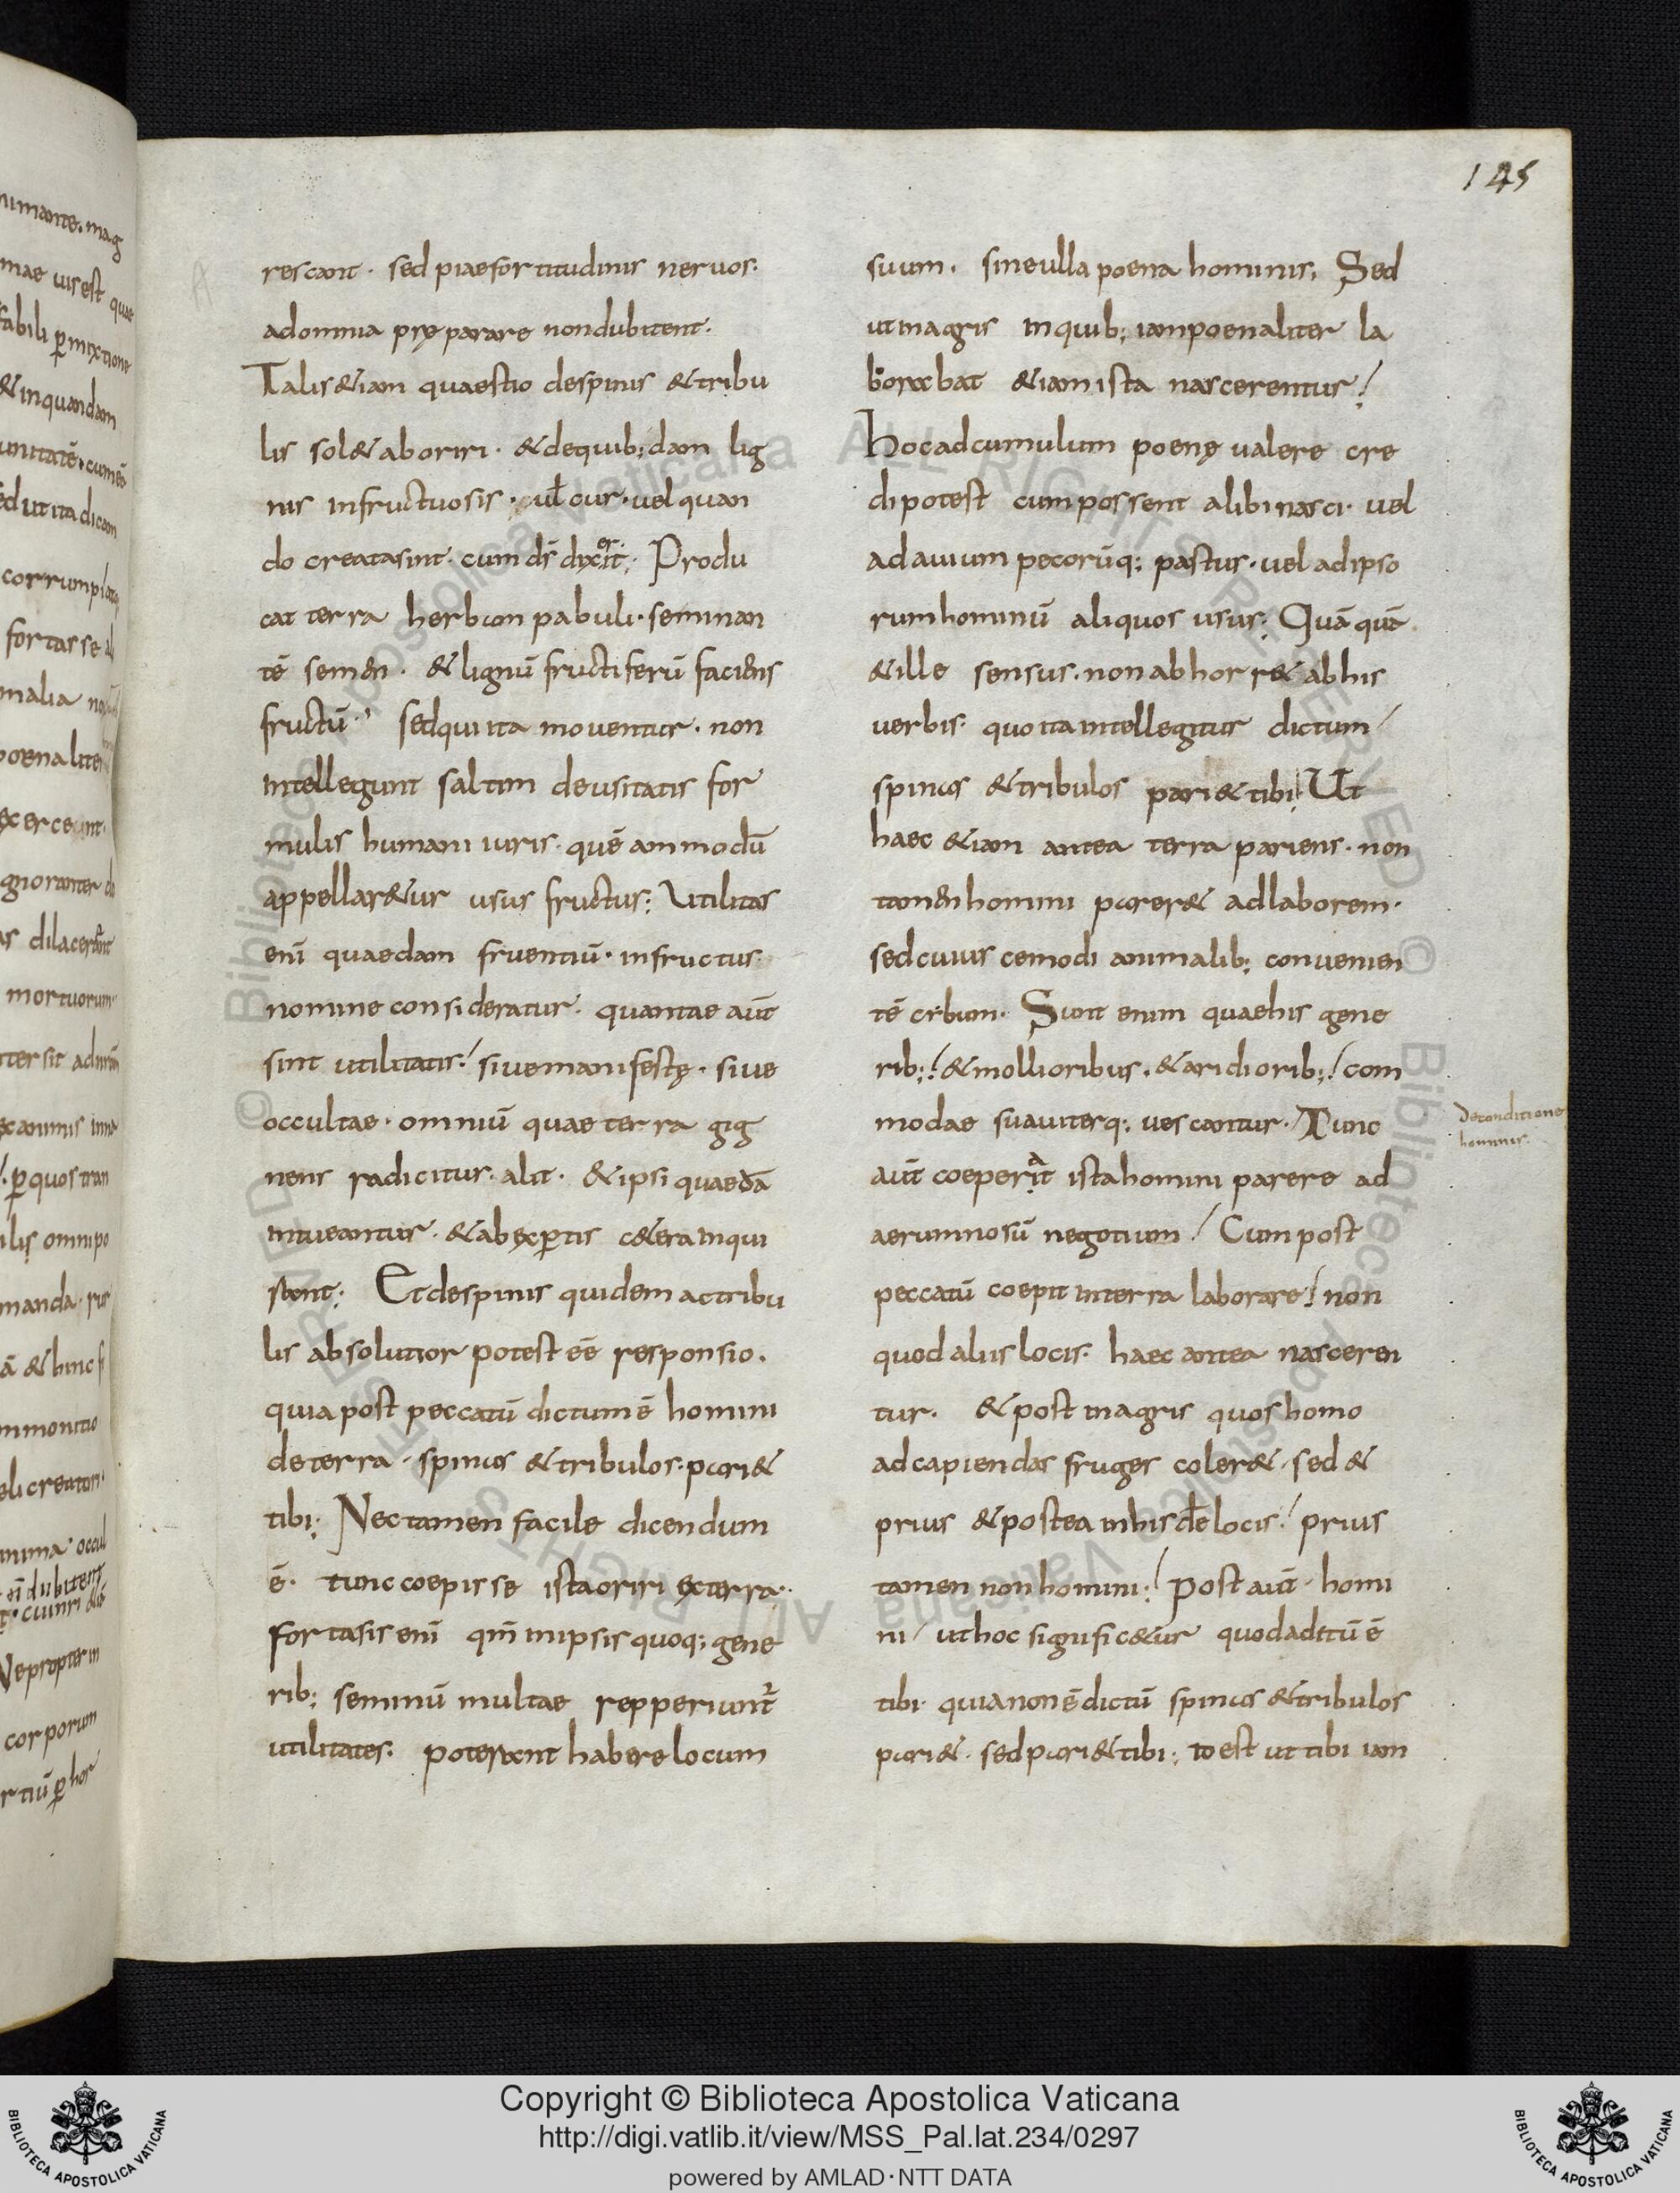 145
rescant · sed piae fortitudinis neruos ·
ad omnia pręparare non dubitent ·
Talis &iam quaestio de spinis & tribu
lis sol& aboriri · & de quib; dam lig
nis infructuosis · uł cur · uel quan
do creata sint · cum dš dyx̣it er ; Produ
cat terra herbam pabuli · seminan
tē semen · & lignū fructiferū faciens
fructū · sed qui ita mouentur · non
intellegunt saltim de usitatis for
mulis humani iuris · quē ammodū
appellar&ur usus fructus ; Utilitas
enī quaedam fruentiū · in fructus
nomine consideratur · quantae aūt
sint utilitatis ! siue manifestę · siue
occultae · omniū quae terra gig
nens radicitur · alit · & ipsi quaedā
intueantur · & ab expertis c&era inqui
rant ; Et de spinis quidem ac tribu
lis absolutior potest ēē responsio ·
quia post peccatū dictum ē homini
de terra · spinas & tribulos · pari&
tibi ; Nec tamen facile dicendum
ē · tunc coepisse ista oriri ex terra ·
fortasis enī qm̄ in ipsis quoq; gene
rib; seminū multae repperiunt̃
utilitates : poterant habere locum
suum · sine ulla poena hominis · Sed
ut in agris in quib; iam poenaliter la
borabat &iam ista nascerentur !
Hoc ad cumulum poenę ualere cre
di potest cum possent alibi nasci · uel
ad auium pecorūq; pastus · uel ad ipso
rum hominū aliquos usus ; Quāquā
& ille sensus · non abhorr& ab his
uerbis · quo ita intellegitur dictum /
spinas & tribulos pari& tibi ! Ut
haec &iam antea terra pariens · non
tamen homini parer& ad laborem ·
sed cuiuscemodi animalib; conuenien
tē cibum · Sunt enim quae his gene
rib; ! & mollioribus · & aridiorib; ! com
modae suauiterq; uescantur · / Tunc
aūt coeperit a ista homini parere ad
aerumnosū negotium / Cum post
peccatū coepit in terra laborare ! non
quod aliis locis · haec antea nasceren
tur · & post in agris quos homo
ad capiendas fruges coler& · sed &
prius & postea in hisdē locis ! prius
tamen non homini ! post aūt · homi
ni / ut hoc signific&ur quod additū ē
tibi · quia non ē dictū spinas & tribulos
pari& · sed pari& tibi ; id est ut tibi iam
De conditione
hominis ·
Copyright © Biblioteca Apostolica Vaticana
http://digi.vatlib.it/view/MSS_Pal.lat.234/0297
powered by AMLAD·NTT DATA
BIBLIOTECA APOSTOLICA VATICANA
BIBLIOTECA APOSTOLICA VATICANA